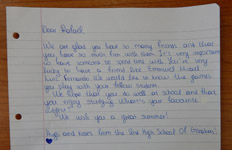 Dear Rafael,
We are glad you have so many friends and that
you have so much fun with them. It's very important
to have someone to some time with. You're very
lucky to have a friend like Emanuel Hazard
and Fernando. We would like to know the games
you play with your fellow students.
We hope that you do well at school and that
you enjoy studying. What's your favourite
We wish you a great summer!
Hugs and kisses from the 2nd High School Of